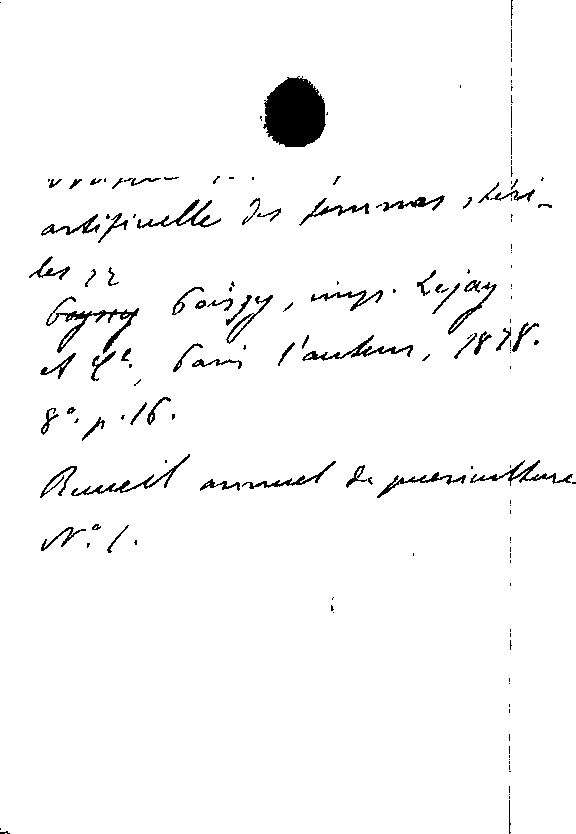 artificielle des femmes stéri-
les
Poissy, impr. Lejay
et Cie, Paris l'auteur, 1878.
8°. p. 16.
Recueil annuel de puericulture
N° 1.